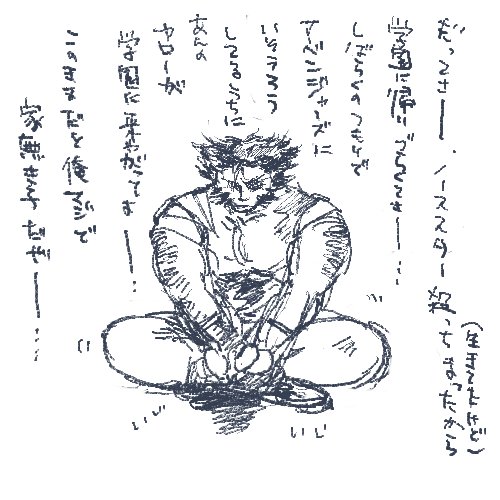 だってさー、ノーススター殺っちまったから
(生きてたけど)
学園に帰りづらくてさー…
しばらくのつもりで
アベンジャーズに
いそうろう
してるうちに
あんの
ヤローが
学園に来やがってさー…
このままだと俺マジで
家無き子だぜー…
いじ
いじ